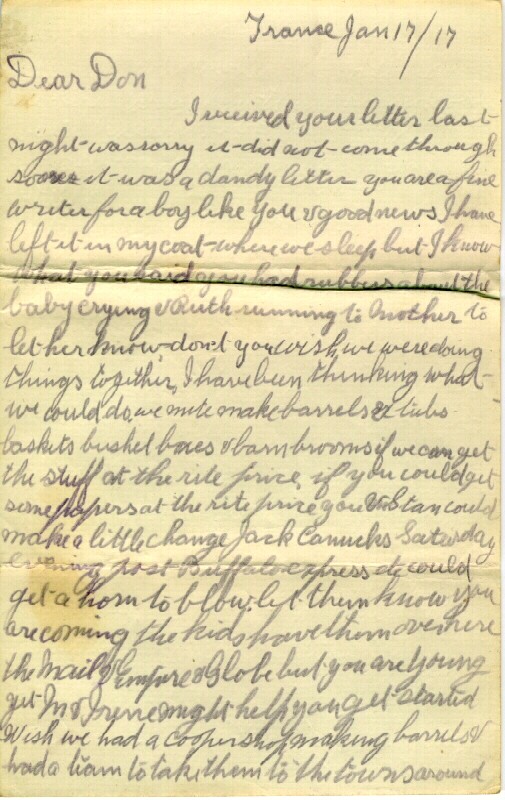 France Jan 17/17
Dear Don
I received your letter last
night was sorry it did not come through
sooner it was a dandy letter you are a fine
writer for a boy like you & good news I have
left it in my coat where we sleep but I know
what you said you had rubbers about the
baby crying & Ruth running to Mother to
let her know, don't you wish we were doing
things together, I have been thinking what
we could do, we mite make barrels & tubs
baskets bushel boxes & barn brooms if we can get
the stuff at the rite price, if you could get
some papers at the rite price you & Stan could
make a little change Jack Canucks Saturday
evening post Buffalo express etc could
get a horn to blow, let them know you
are coming the kids have them over here
the Mail & Empire & Globe but you are young
yet M & Irene might help you get started
Wish we had a cooper shop making barrels &
had a team to take them to the towns around